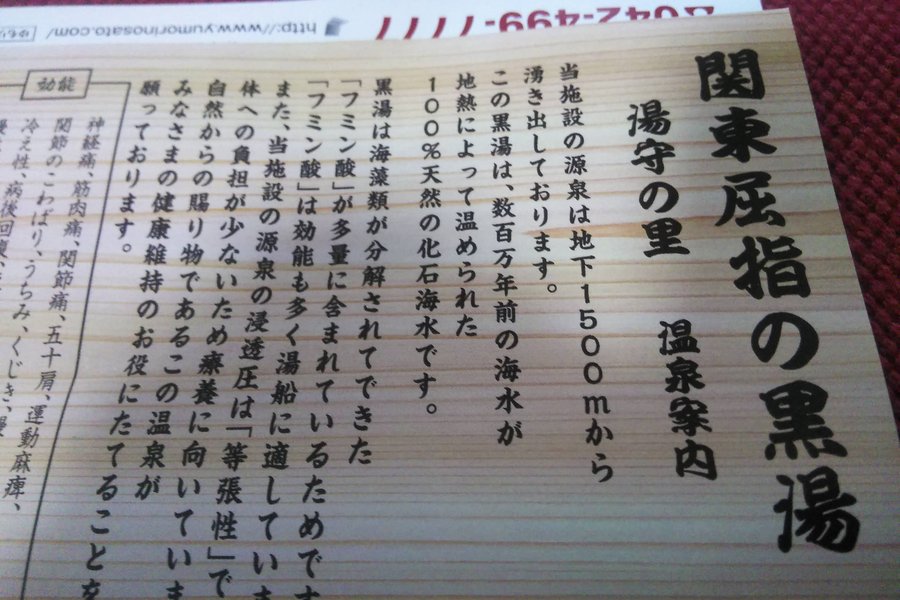 関東屈指の黒湯
湯守の里 温泉案内
当施設の源泉は地下1500mから
湧き出しております。
この黒湯は、数百万年前の海水が
地熱によって温められた
100%天然の化石海水です。
黒湯は海藻類が分解されてできた
「フミン酸」が多量に含まれているためです
「フミン酸」は効能も多く湯船に適していま
また、当施設の源泉の浸透圧は「等張性」で
体への負担が少ないため療養に向いていま
自然からの賜り物であるこの温泉が
みなさまの健康維持のお役にたてることを
願っております。
効能
神経痛、筋肉痛、関節痛、五十肩、運動麻痺、
関節のこわばり、うちみ、くじき、慢
冷え性、病後回復、
http://www.yumorinosato.com/
042-499-7777